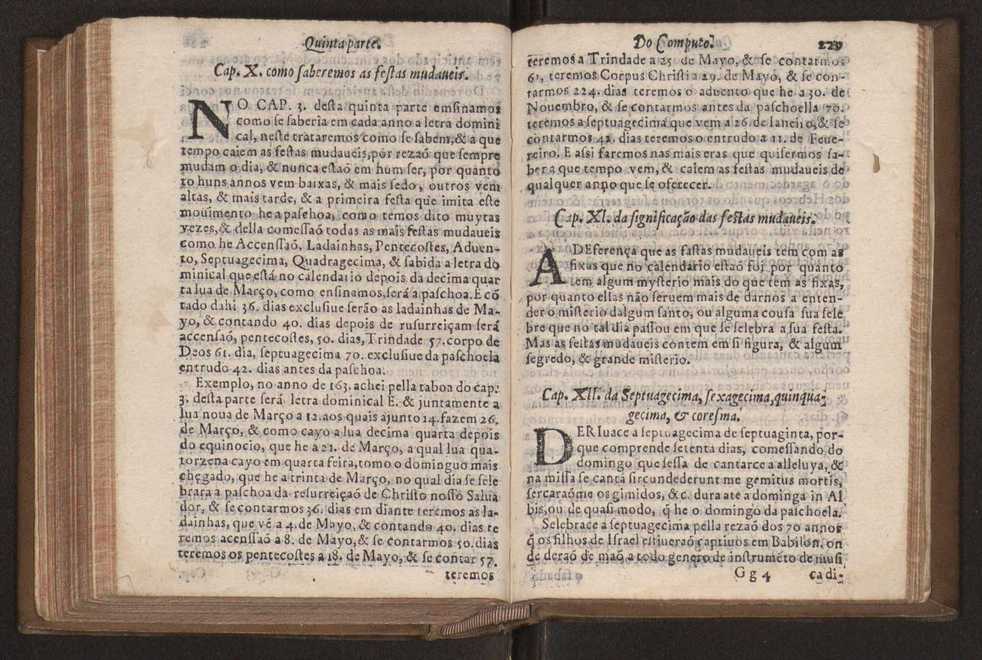 Quinta parte.
Cap. X. como saberemos as festas mudaueis.
NO CAP. 3. desta quinta parte emsinamos
como se saberia em cada anno a letra domini
cal, neste trataremos como se sabem, & a que
tempo caiem as festas mudaueis, por rezaõ que sempre
mudam o dia, & nunca estaõ em hum ser, por quanto
to huns annos vem baixas, & mais sedo, outros vem
altas, & mais tarde, & a primeira festa que imita este
mouimento he a paschoa, como temos dito muytas
vezes, & della comessaõ todas as mais festas mudaueis
como he Accenssaõ, Ladainhas, Pentecostes, Aduen-
to, Septuagecima, Quadragecima, & sabida a letra do
minical que está no calendario depois da decima quar
ta lua de Março, como ensinamos, será a paschoa. E cõ
tado dahi 36. dias exclusiue serão as ladainhas de Ma-
yo, & contando 40. dias depois de rusurreiçam será
accensaõ, pentecostes, 50. dias, Trindade 57. corpo de
Deos 61. dia, septuagecima 70. exclusiue da paschoela
entrudo 42. dias antes da paschoa.
Exemplo, no anno de 163. achei pella taboa do cap.
3. desta parte será letra dominical E. & juntamente a
lua noua de Março a 12. aos quais ajunto 14. fazem 26.
de Março, & como cayo a lua decima quarta depois
do equinocio, que he a 21. de Março, a qual lua qua-
torzena cayo em quarta feira, tomo o dominguo mais
chegado, que he a trinta de Março, no qual dia se sele
brara a paschoa da resurreiçaõ de Christo nosso Salua
dor, & se contarmos 36. dias em diante teremos as la-
dainhas, que vé a 4. de Mayo, & contando 40. dias te
remos acenssaõ a 8. de Mayo, & se contarmos 50. dias
teremos os pentecostes a 18. de Mayo, & se contar 57.
teremos
Do Computo.
229
teremos a Trindade a 25. de Mayo, & se contarmos
61, teremos Corpus Christi a 29. de Mayo, & se con-
tarmos 224. dias teremos o aduento que he a 30. de
Nouembro, & se contarmos antes da paschoella 70.
teremos a septuagecima que vem a 26. de Ianeiro, & se
contarmos 42. dias teremos o entrudo a 11. de Feue-
reiro. E assi faremos nas mais eras que quisermos sa-
ber a que tempo vem, & caiem as festas mudaueis de
qualquer anno que se oferecer.
Cap. XI. da significação das festas mudaueis.
A DEferença que as fastas mudaueis tem com as
fixas que no calendario estaõ foi por quanto
tem algum mysterio mais do que tem as fixas,
por quanto ellas não seruem mais de darnos a enten-
der o misterio dalgum santo, ou alguma cousa sua sele
bre que no tal dia passou em que se selebra a sua festa.
Mas as festas mudaueis contem em si figura, & algum
segredo, & grande misterio.
Cap. XII. da Septuagecima, sexagecima, quinqua-
gecima, & coresma.
DERIuace a septuagecima de septuaginta, por-
que comprende setenta dias, comessando do
domingo que sessa de cantarce a alleluya, &
na missa se canta sircundederunt me gemitus mortis,
sercaraõme os gimidos, &c. dura ate a dominga in Al
bis, ou de quasi modo, q̃ he o domingo da paschoela.
Selebrace a septuagecima pella rezaõ dos 70 annos
q̃ os filhos de Israel estiueraõ captiuos em Babilon. on
de deraõ de maõ a todo genero de instrumẽto de musi
Gg4
ca di-